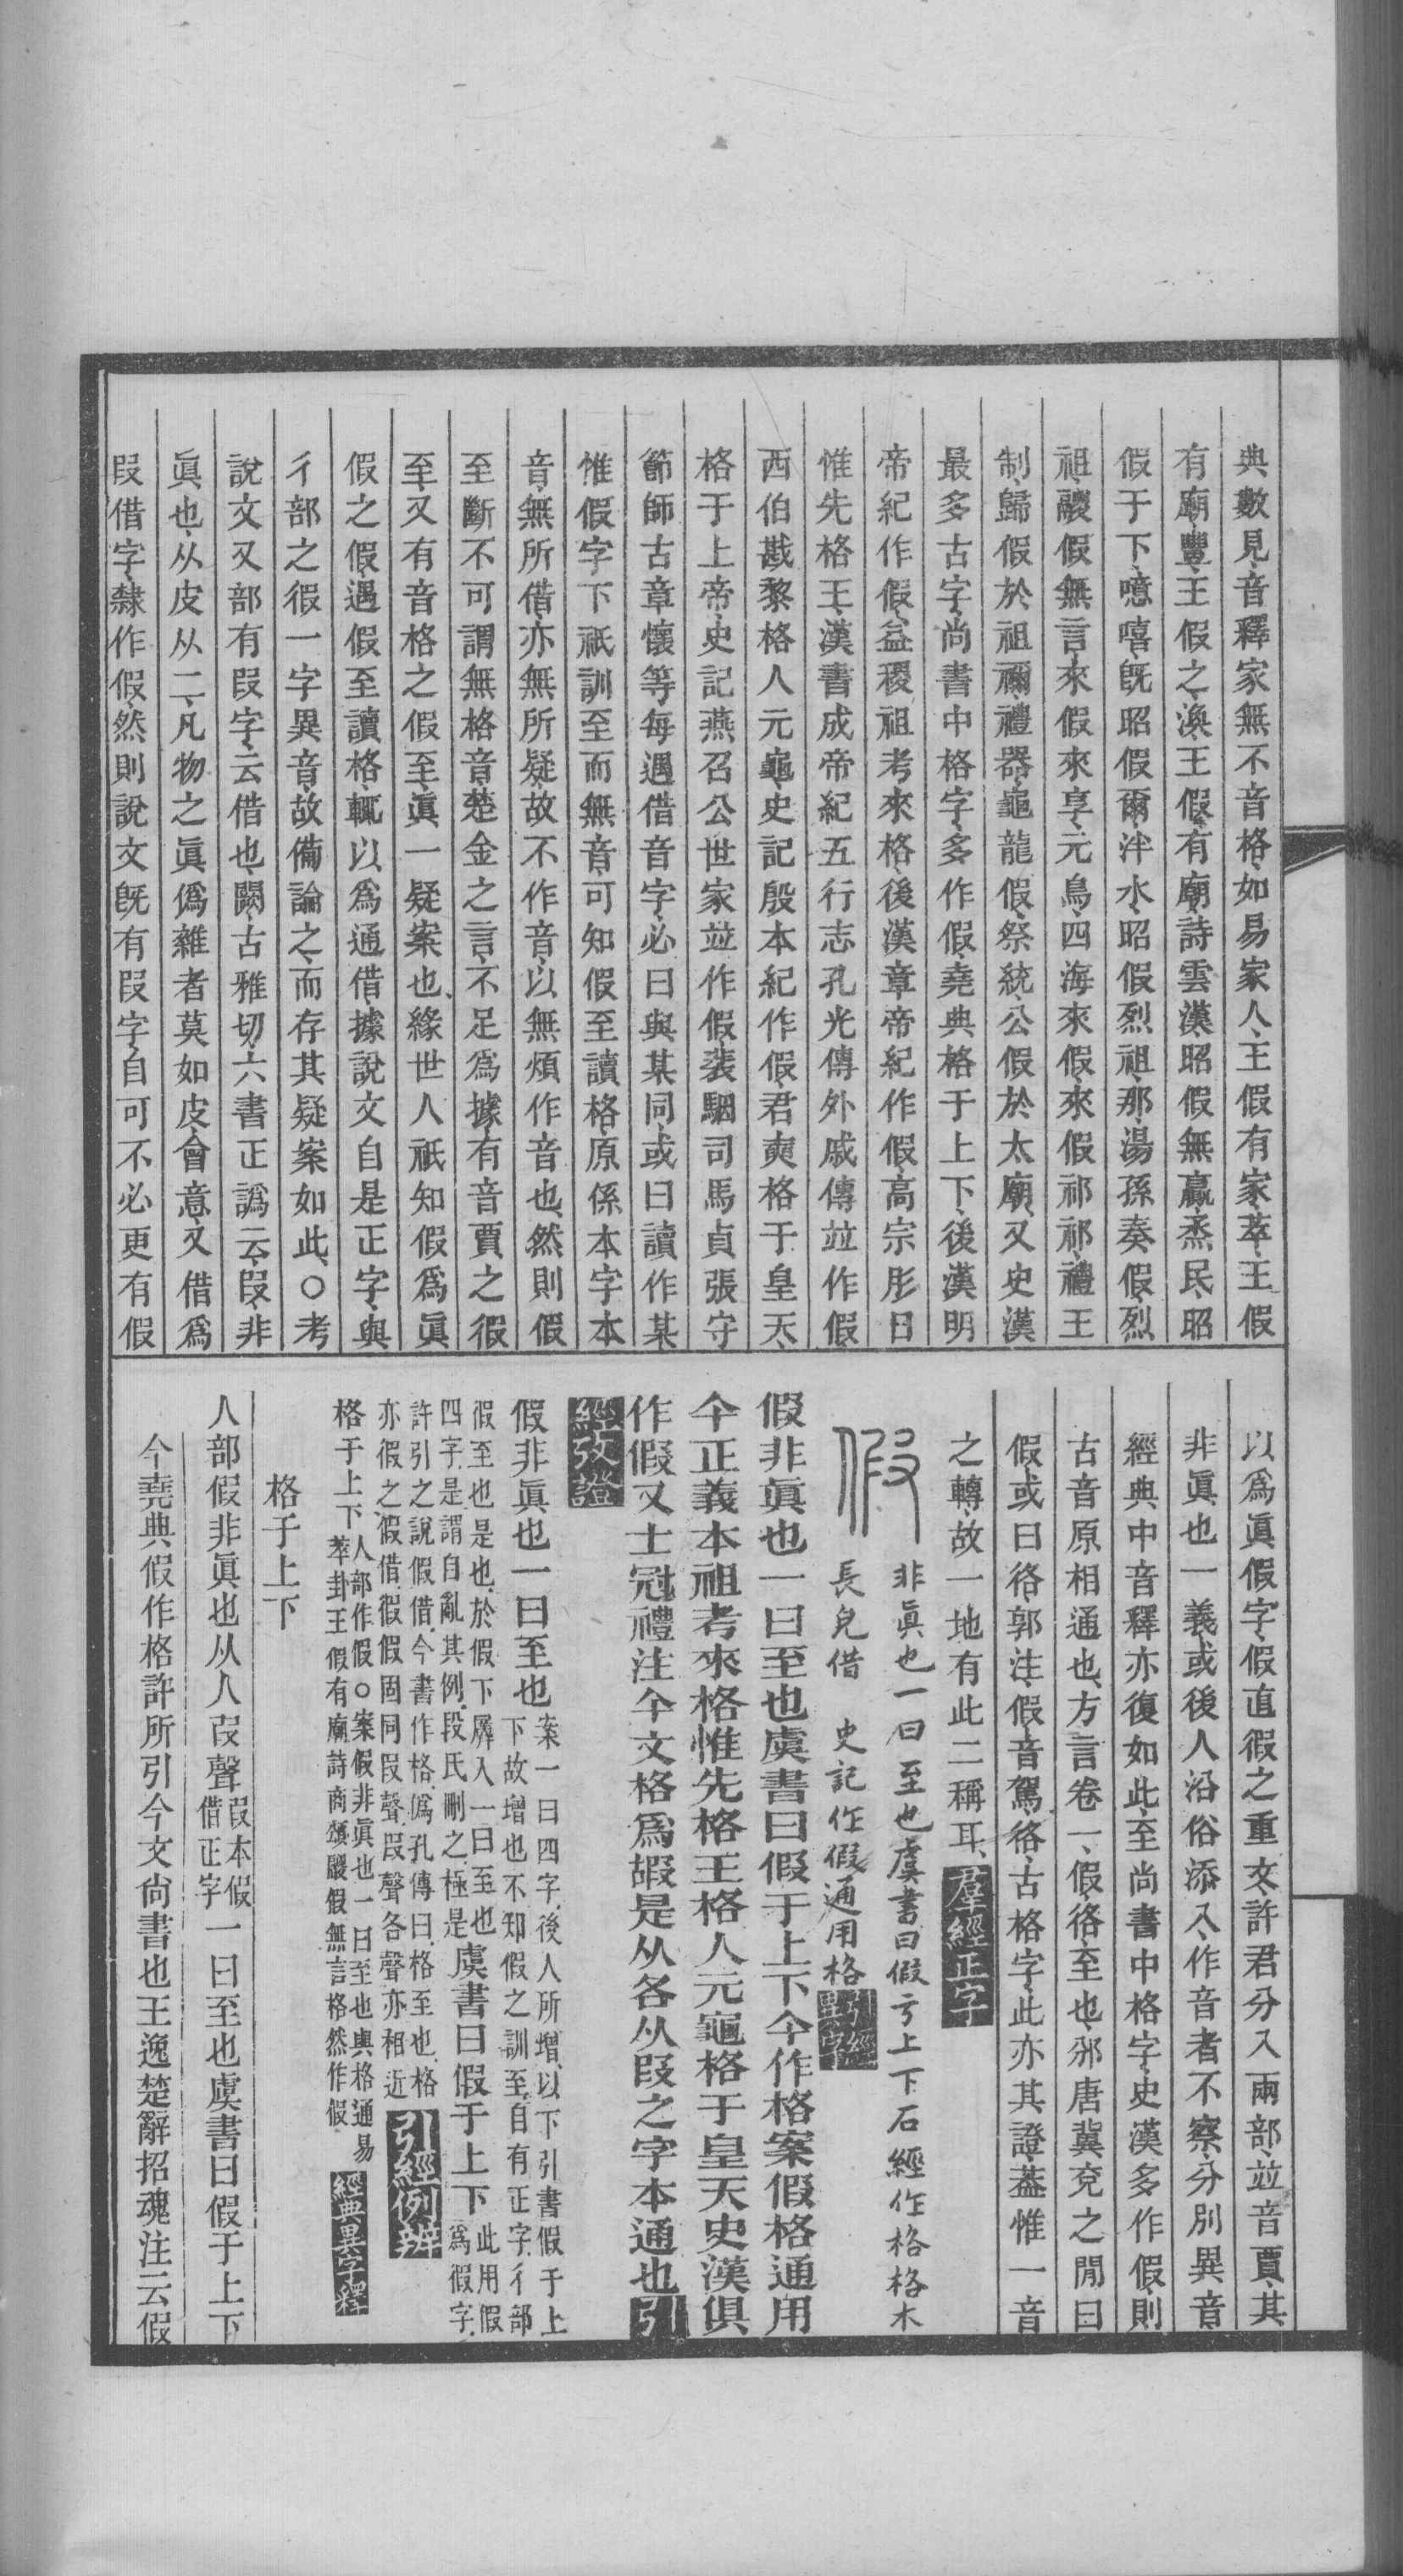 典數見、音釋家無不音格、如易家人、王假有家、萃、王假
有廟、豐、王假之、渙、王假有廟、詩雲漢昭假無贏、烝民、昭
假于下、噫嘻、旣昭假爾、泮水、昭假烈祖、那、湯孫奏假、烈
祖、鬷假無言、來假來享、元鳥、四海來假、來假祁祁、禮王
制、歸假於祖禰、禮器、龜龍假、祭統、公假於太廟、又史漢
最多古字、尚書中格字、多作假、堯典格于上下、後漢明
帝紀作假、益稷祖考來格、後漢章帝紀作假、高宗肜日
惟先格王、漢書成帝紀五行志孔光傳外戚傳竝作假、
西伯戡黎格人元龜、史記殷本紀作假、君奭格于皇天、
格于上帝、史記燕召公世家竝作假、裴駰司馬貞張守
節師古章懷等每遇借音字、必曰與某同、或曰讀作某
惟假字下祇訓至而無音、可知假至讀格、原係本字本
音、無所借、亦無所疑、故不作音、以無煩作音也、然則假
至斷不可謂無格音、楚金之言、不足爲據、有音賈之徦
至、又有音格之假至、眞一疑案也、緣世人祇知假爲眞
假之假、遇假至讀格、輒以爲通借、據說文自是正字、與
彳部之徦一字異音、故備論之、而存其疑案如此、○考
說文又部有叚字、云借也、闕、古雅切、六書正譌云、叚、非
眞也、从皮、从二、凡物之眞僞雜者莫如皮、會意、又借爲
叚借字、隸作假、然則說文旣有叚字、自可不必更有假
以爲眞假字、假直徦之重文、許君分入兩部、竝音賈、其
非眞也一義、或後人沿俗添入、作音者不察、分別異音
經典中音釋亦復如此、至尚書中格字、史漢多作假、則
古音原相通也、方言卷一、假、𢓜、至也、邠唐冀兗之閒曰
假、或曰𢓜、郭注、假音駕、𢓜、古格字、此亦其證、葢惟一音
之轉、故一地有此二稱耳、羣經正字
假 非眞也一曰至也虞書曰假亏上下石經作格格木
長皃借 史記作假通用格引經異字
假非眞也一曰至也虞書曰假于上下今作格案假格通用
今正義本祖考來格惟先格王格人元龜格于皇天史漢俱
作假又士冠禮注今文格爲嘏是从各从叚之字本通也引
經攷證
假非眞也一曰至也案一曰四字、後人所增、以下引書假于上
下故增也不知假之訓至、自有正字、彳部
徦至也是也、於假下羼入一曰至也
四字、是謂自亂其例、段氏刪之、極是虞書曰假于上下此用假
爲徦字、
許引之說假借、今書作格、僞孔傳曰、格至也、格
亦假之假借、徦假固同叚聲、叚聲各聲亦相近引經例辨
格于上下人部作假○案假非眞也一曰至也與格通易
萃卦王假有廟詩商頌鬷假無言格然作假經典異字釋
格于上下
人部假非眞也从人叚聲叚本假
借正字一曰至也虞書曰假于上下
今堯典假作格許所引今文尚書也王逸楚辭招魂注云假